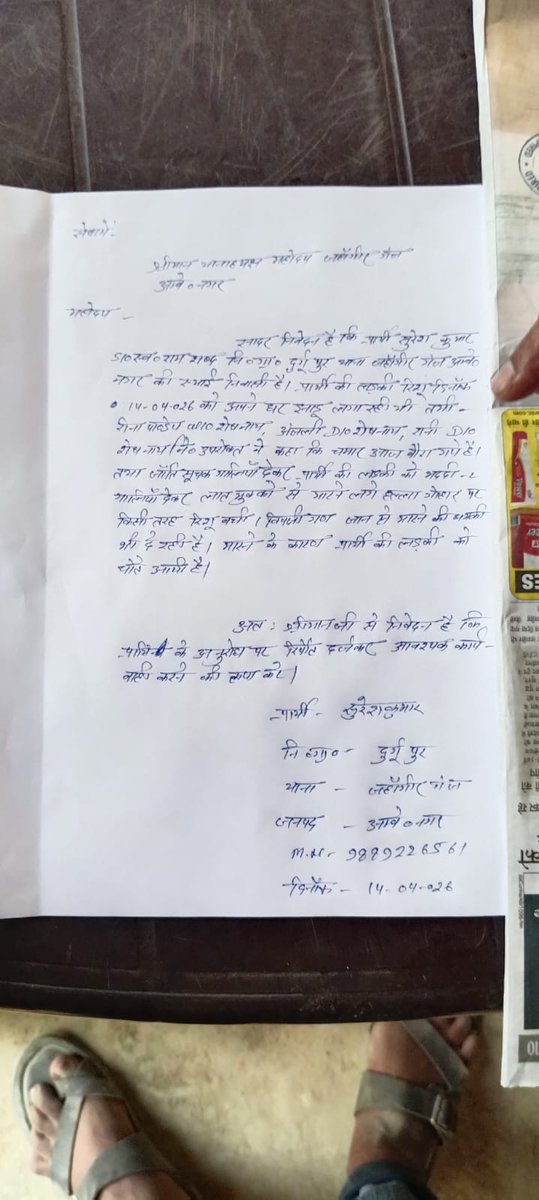 सेवामें:
श्रीमान थानाध्यक्ष महोदय जहाँगीर गंज
अम्बे० नगर
महोदय -
सादर निवेदन है कि प्रार्थी सुरेश कुमार
S/O स्व० राम शब्द नि०ग्रा० दुर्गू पुर थाना जहाँगीर गंज अम्बे०
नगर की स्थाई निवासी है। प्रार्थी की लड़की रिशू दिनाँक
14-04-026 को अपने घर झाडू लगा रही थी तभी -
W/O शेषनाथ, अंजली D/O शेषनाथ, रानी D/O
शेषनाथ नि० उपरोक्त ने कहा कि चमार आज बौरा गये है।
तथा जाति सूचक गालियाँ देकर प्रार्थी की लडकी को भद्दी-२
गालियाँ देकर लात मुक्को से मारने लगे हल्ला गोहार पर
किसी तरह रिशू बची। विपक्षी गण जान से मारने की धमकी
भी दे रही है। मारने के कारण प्रार्थी की लड़की को
चोटे आयी है।
अतः श्रीमान जी से निवेदन है कि
के अनुरोध पर रिर्पोट दर्जकर आवश्यक कार्य-
वाही करने की कृपा करे।
प्रार्थी - सुरेश कुमार
नि०ग्रा० - दुर्गू पुर
थाना - जहाँगीर गंज
जनपद - अम्बे० नगर
M.N- 9889226561
दिनाँक - 14-04-026